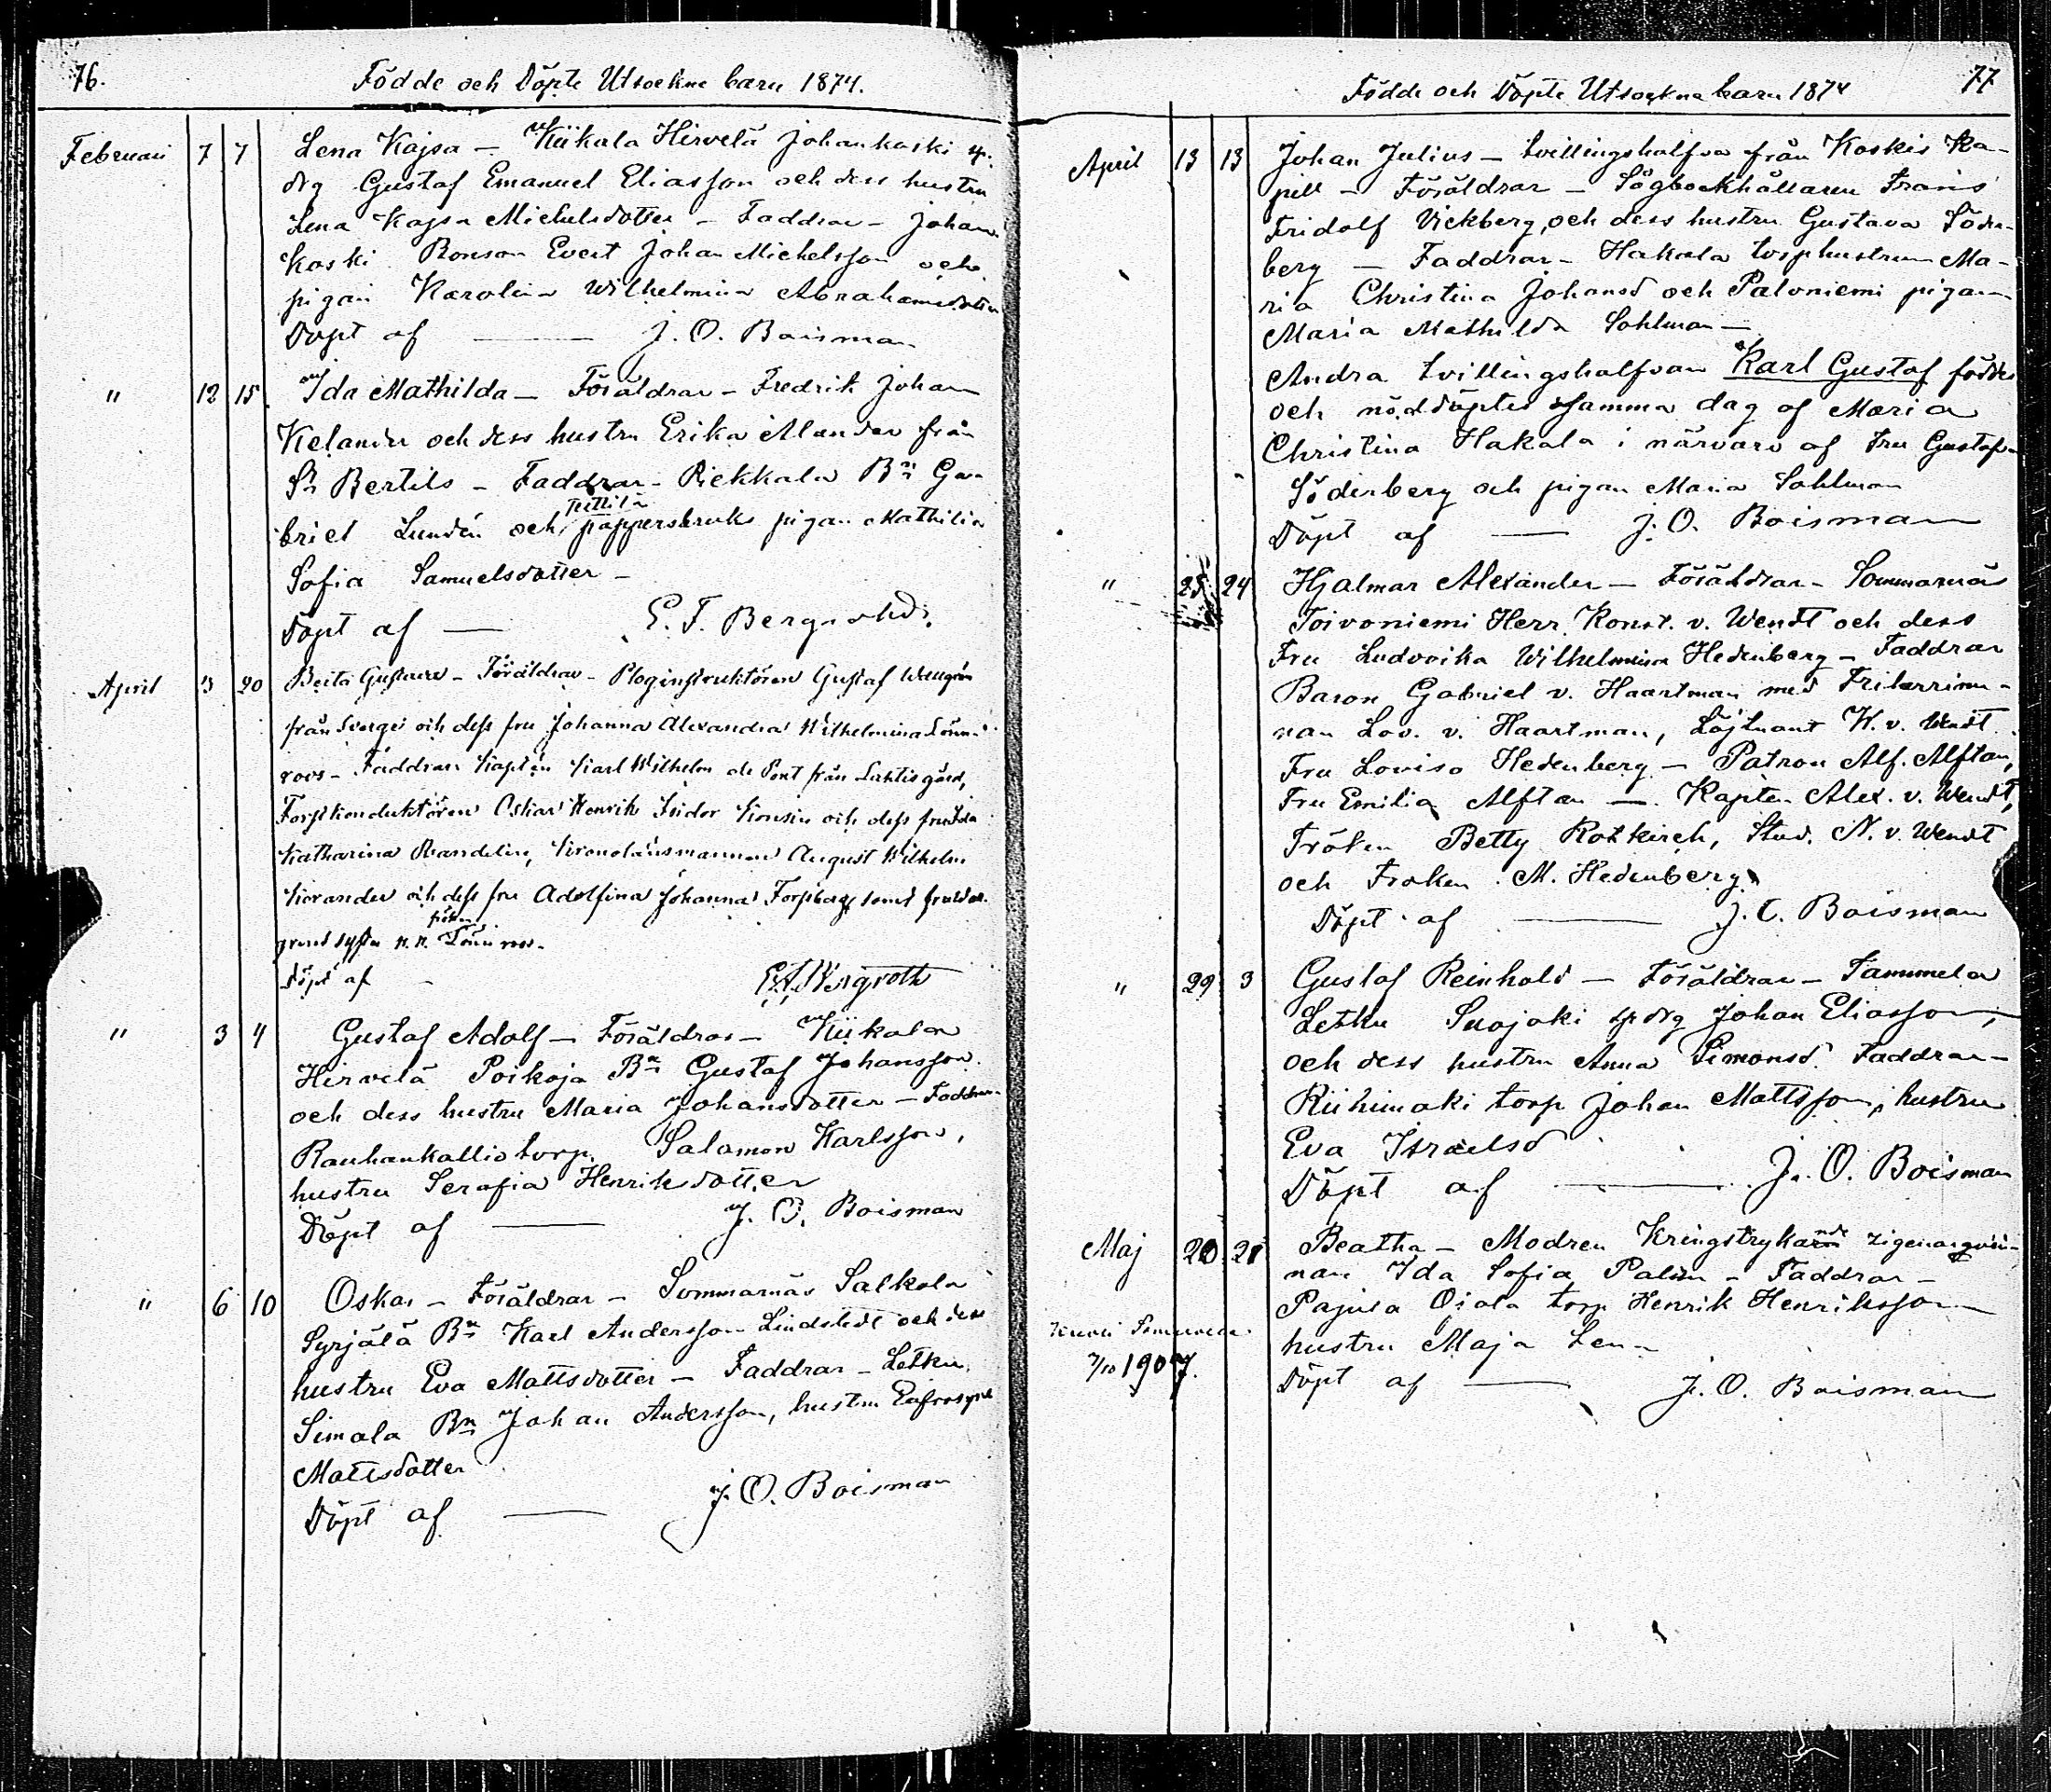 76.
Födde och Döpte Utsockne barn 1874.
Februari 7 7 Lena Kajsa — Kiikala Hirvelä Johankoski sp.
drg Gustaf Emanuel Eliasson och dess hustru
Lena Kajsa Michelsdotter — Faddrar — Johan
koski Bonson Evert Johan Michelsson och
pigan Karolina Wilhelmina Abrahamsdotter
Döpt af — J. O. Boisman
" 12 15 Ida Mathilda — Föräldrar — Fredrik Johan
Kelander och dess hustru Erika Alander från
St Bertils — Faddrar — Riekkala Bn Ga-
briel Lundén och pappersbruks pigan Mathilda
Sofia Samuelsdotter —
Döpt af — E. F. Bergroth.
April 3 20 Berta Gustava — Föräldrar — Ploginstruktören Gustaf
från Sverge och dess fru Johanna Alexandra Wilhelmina Lönn-
roos — Faddrar Kapten Karl Wilhelm de Pont från Lahtis gård,
Forstkonduktören Oskar Henrik Isidor och dess fru Ida
Katharina Wandelin, Kronolänsmannen August Wilhelm
och dess fru Adolfina Johanna Forsberg samt
fröken
N. N. Lönnroos.
Döpt af — E. F. Bergroth
" 3 4 Gustaf Adolf — Föräldrar — Kiikala
Hirvelä Poikoja Bn Gustaf Johansson
och dess hustru Maria Johansdotter — Faddrar
Rauhankallio torp. Salamon Karlsson,
hustru Serafia Henriksdotter
Döpt af — J. O. Boisman
" 6 10 Oskar — Föräldrar — Sommarnäs Salkola
Syrjälä Bn Karl Andersson Lindstedt och dess
hustru Eva Mattsdotter — Faddrar — Letku
Simala Bn Johan Andersson, hustru Eufrosyne
Mattsdotter
Döpt af — J. O. Boisman
Födde och Döpte Utsockne barn 1874
77
April 13 13 Johan Julius — tvillingshalfva från Koskis Ka-
pell — Föräldrar — Sögbockhållaren Frans
Fridolf Vickberg, och dess hustru Gustava Söder-
berg — Faddrar — Hakala torphustrun Ma-
ria Christina Johansd och Paloniemi pigan
Maria Mathilda Sahlman —
Andra tvillingshalfvan Karl Gustaf föddes
och nöddöptes samma dag af Maria
Christina Hakala i närvaro af Fru Gustafva
Söderberg och pigan Maria Sahlman
Döpt af — J. O. Boisman
" 25 24 Hjalmar Alexander — Föräldrar — Sommarnäs
Toivoniemi Herr Konst. v. Wendt och dess
Fru Ludovika Wilhelmina Hedenberg — Faddrar
Baron Gabriel v. Haartman med Friherrinn-
nan Lov. v. Haartman, Löjtnant W. v. Wendt
Fru Lovisa Hedenberg — Patron Alf. Alftan,
Fru Emilia Alftan — Kapten Alex. v. Wendt,
Fröken Betty Rotkirch, Stud. N. v. Wendt
och Froken M. Hedenberg
Döpt af — J. O. Boisman
" 29 3 Gustaf Reinhold — Föräldrar — Tammela
Letku Suojoki sp drg Johan Eliasson,
och dess hustru Anna Simonsd. Faddrar —
Riihimäki torp Johan Mattsson, hustru
Eva Israelsd
Döpt af — J. O. Boisman
Maj 20 21 Beatha — Modren Kringstrykande zigenarqvin-
nan Ida Sofia Palin — Faddrar —
Pajula Ojala torp Henrik Henriksson
hustru Maja Lena
7/10 1907.
Döpt af — J. O. Boisman